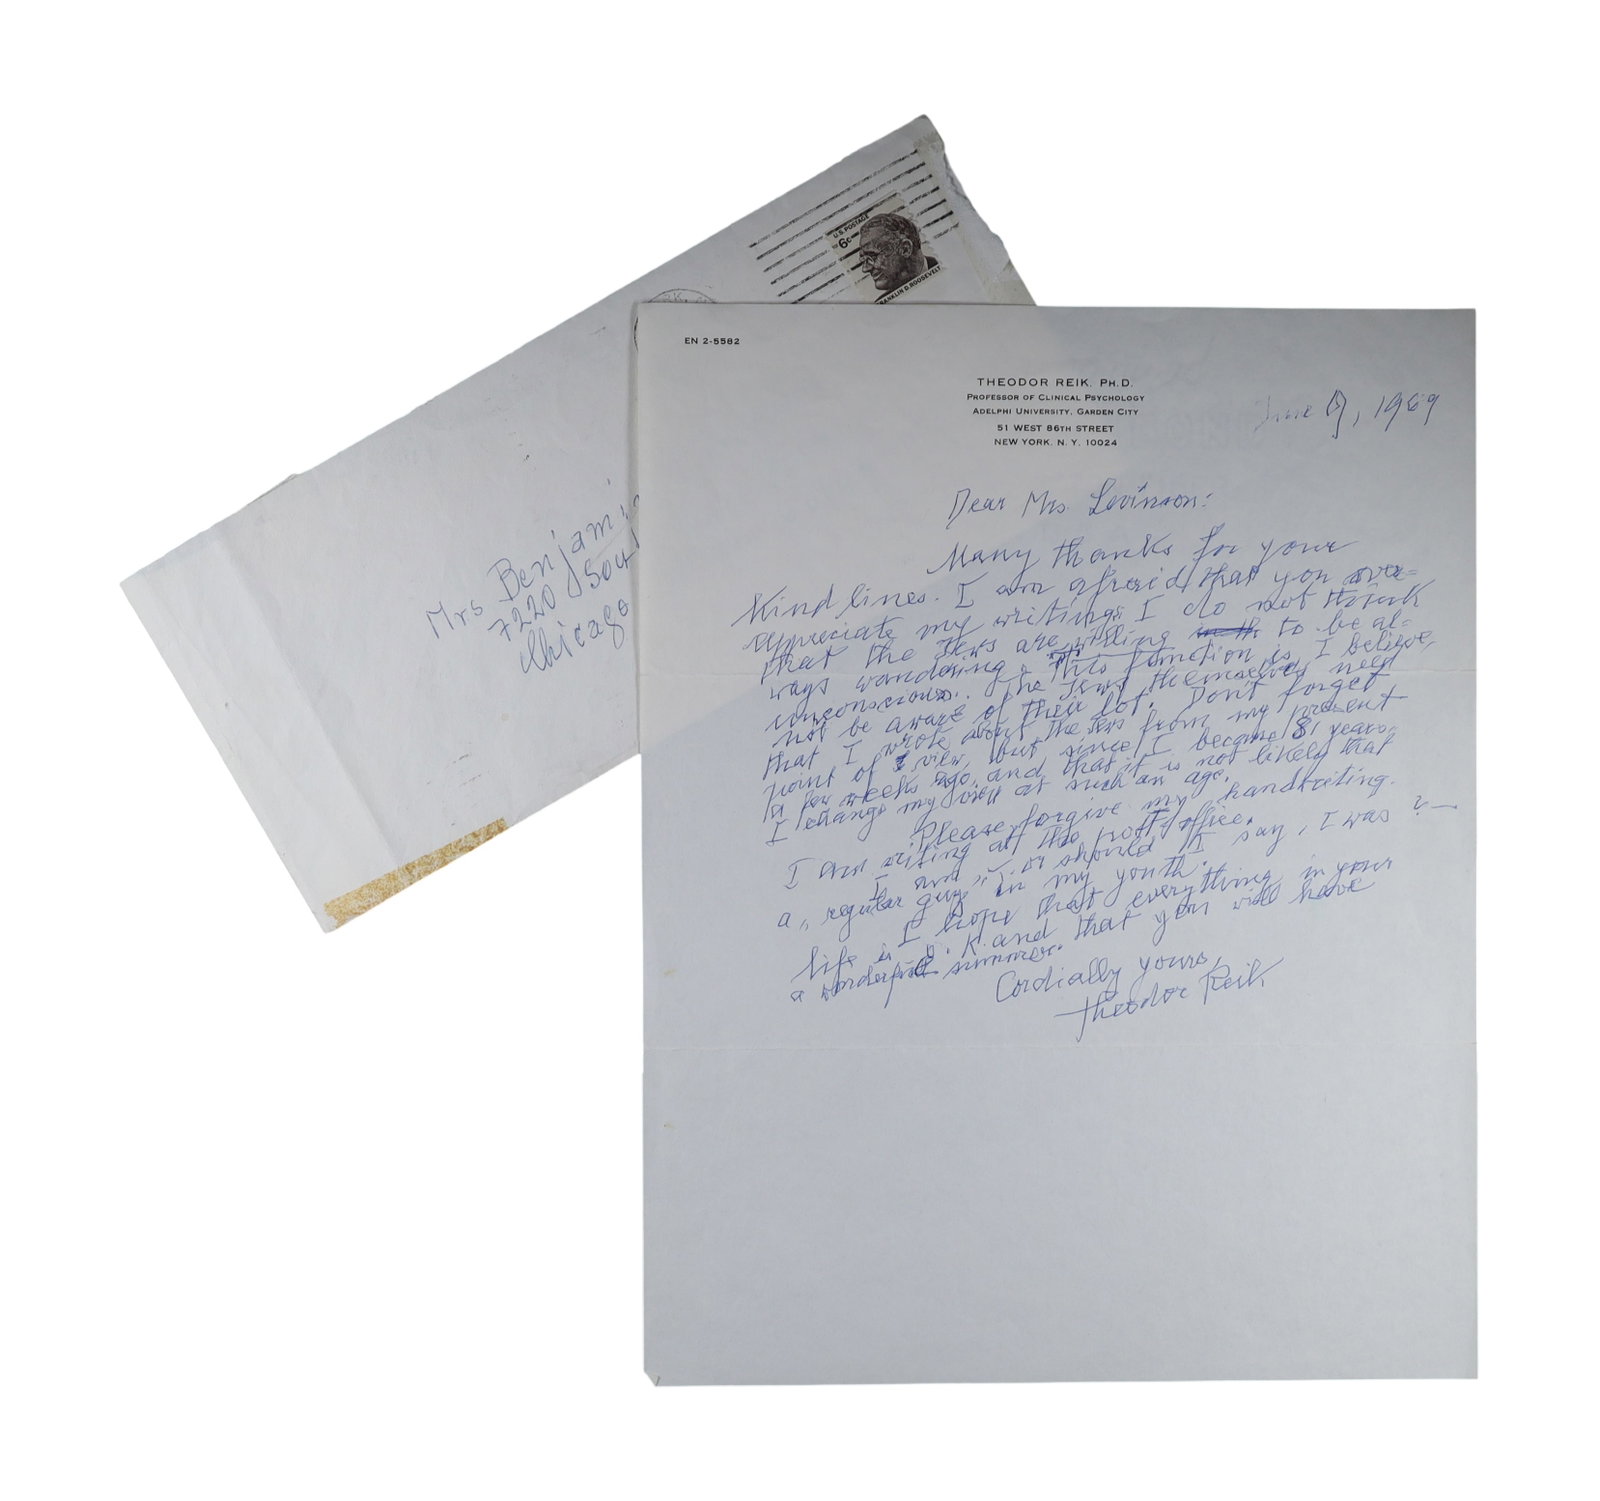 U.S. POSTAGE
6c
FRANKLIN D. ROOSEVELT
Mrs Benjami
7220 Sou
Chicago
EN 2-5582
THEODOR REIK, PH.D.
PROFESSOR OF CLINICAL PSYCHOLOGY
ADELPHI UNIVERSITY, GARDEN CITY
51 WEST 86TH STREET
NEW YORK, N. Y. 10024
June 9, 1969
Dear Mrs. Levinson:
Many thanks for your
kind lines. I am afraid that you over=
appreciate my writings. I do not think
that the Jews are willing to be al=
ways wandering. This function is, I believe,
unconscious. The Jews themselves need
not be aware of their lot. Don't forget
that I wrote about the Jews from my present
point of view, but since I became 81 years
a few weeks ago, and that it is not likely that
I change my view at such an age.
Please, forgive my handwriting.
I am writing at the post office.
I am „ or should I say, I was ?—
a „ regular guy" in my youth.
I hope that everything in your
life is O. K. and that you will have
a wonderful summer.
Cordially yours,
Theodor Reik